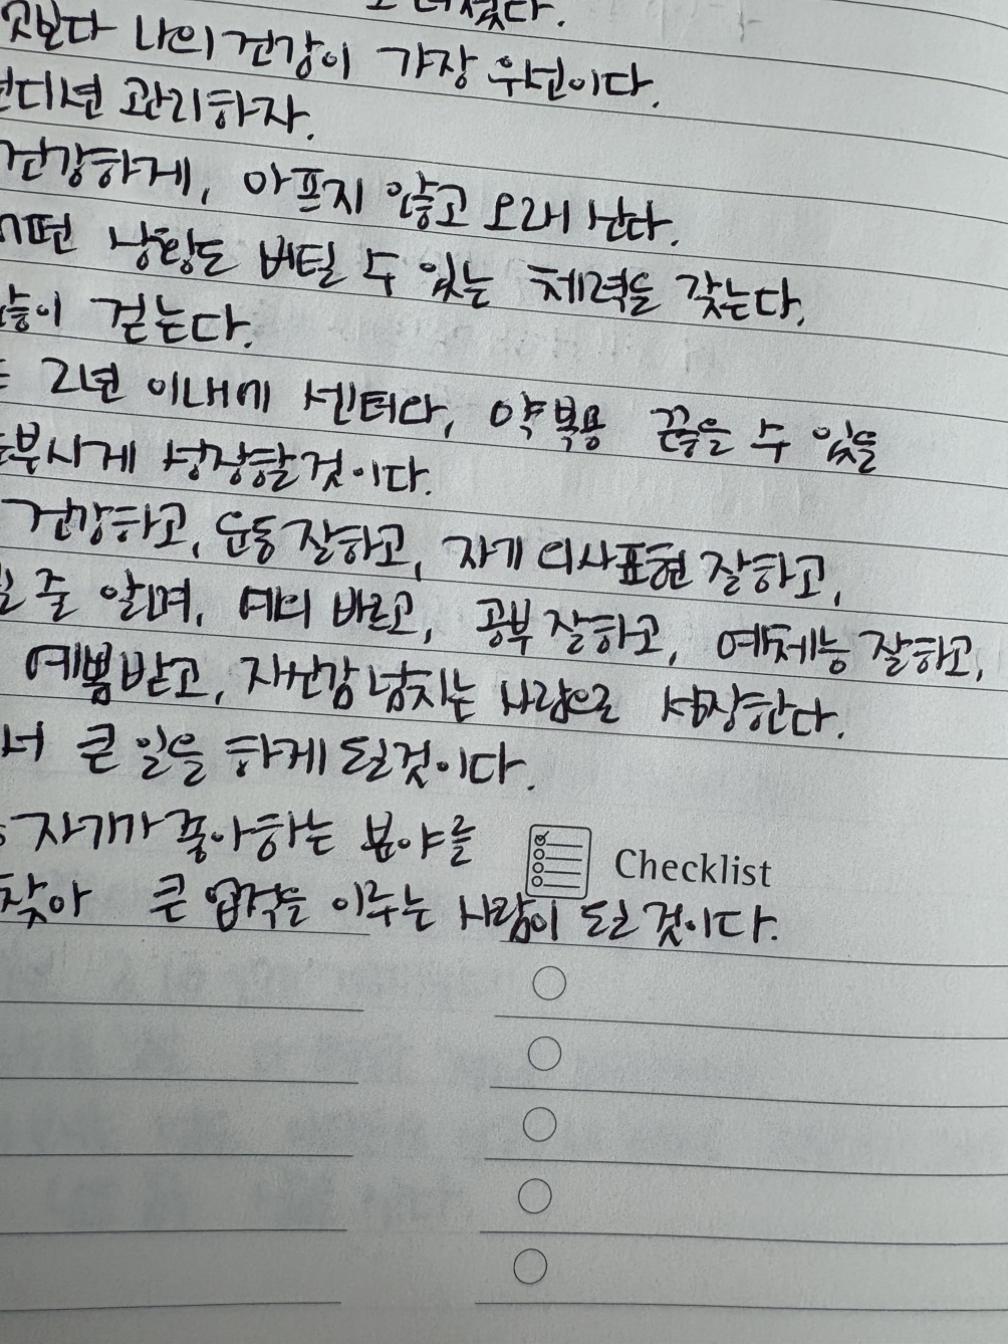 나의 건강이 가장 우선이다.
관리하자.
건강하게, 아프지 않고 오래 산다.
상황도 버틸 수 있는 체력을 갖는다.
걷는다.
2년 이내에 센터다, 약 복용 끊을 수 있을
성장할것이다.
건강하고, 운동 잘하고, 자기 의사표현 잘하고,
줄 알며, 예의 바르고, 공부 잘하고, 예체능 잘하고,
예쁨받고, 자신감 넘치는 사람으로 성장한다.
큰 일을 하게 될것이다.
자기가 좋아하는 분야를
Checklist
찾아 큰 업적을 이루는 사람이 될 것이다.